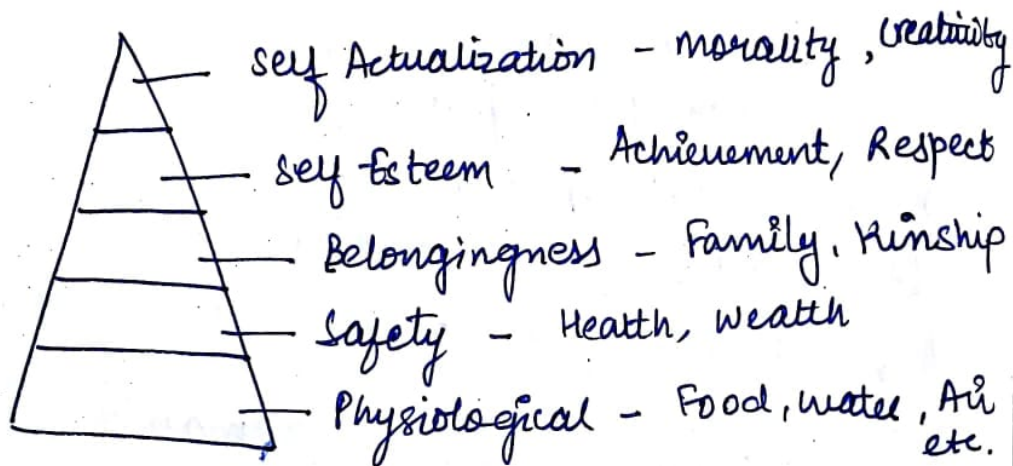 Self Actualization - morality, creativity
Self Esteem - Achievement, Respect
Belongingness - Family, Kinship
Safety - Health, Wealth
Physiological - Food, water, Air
etc.